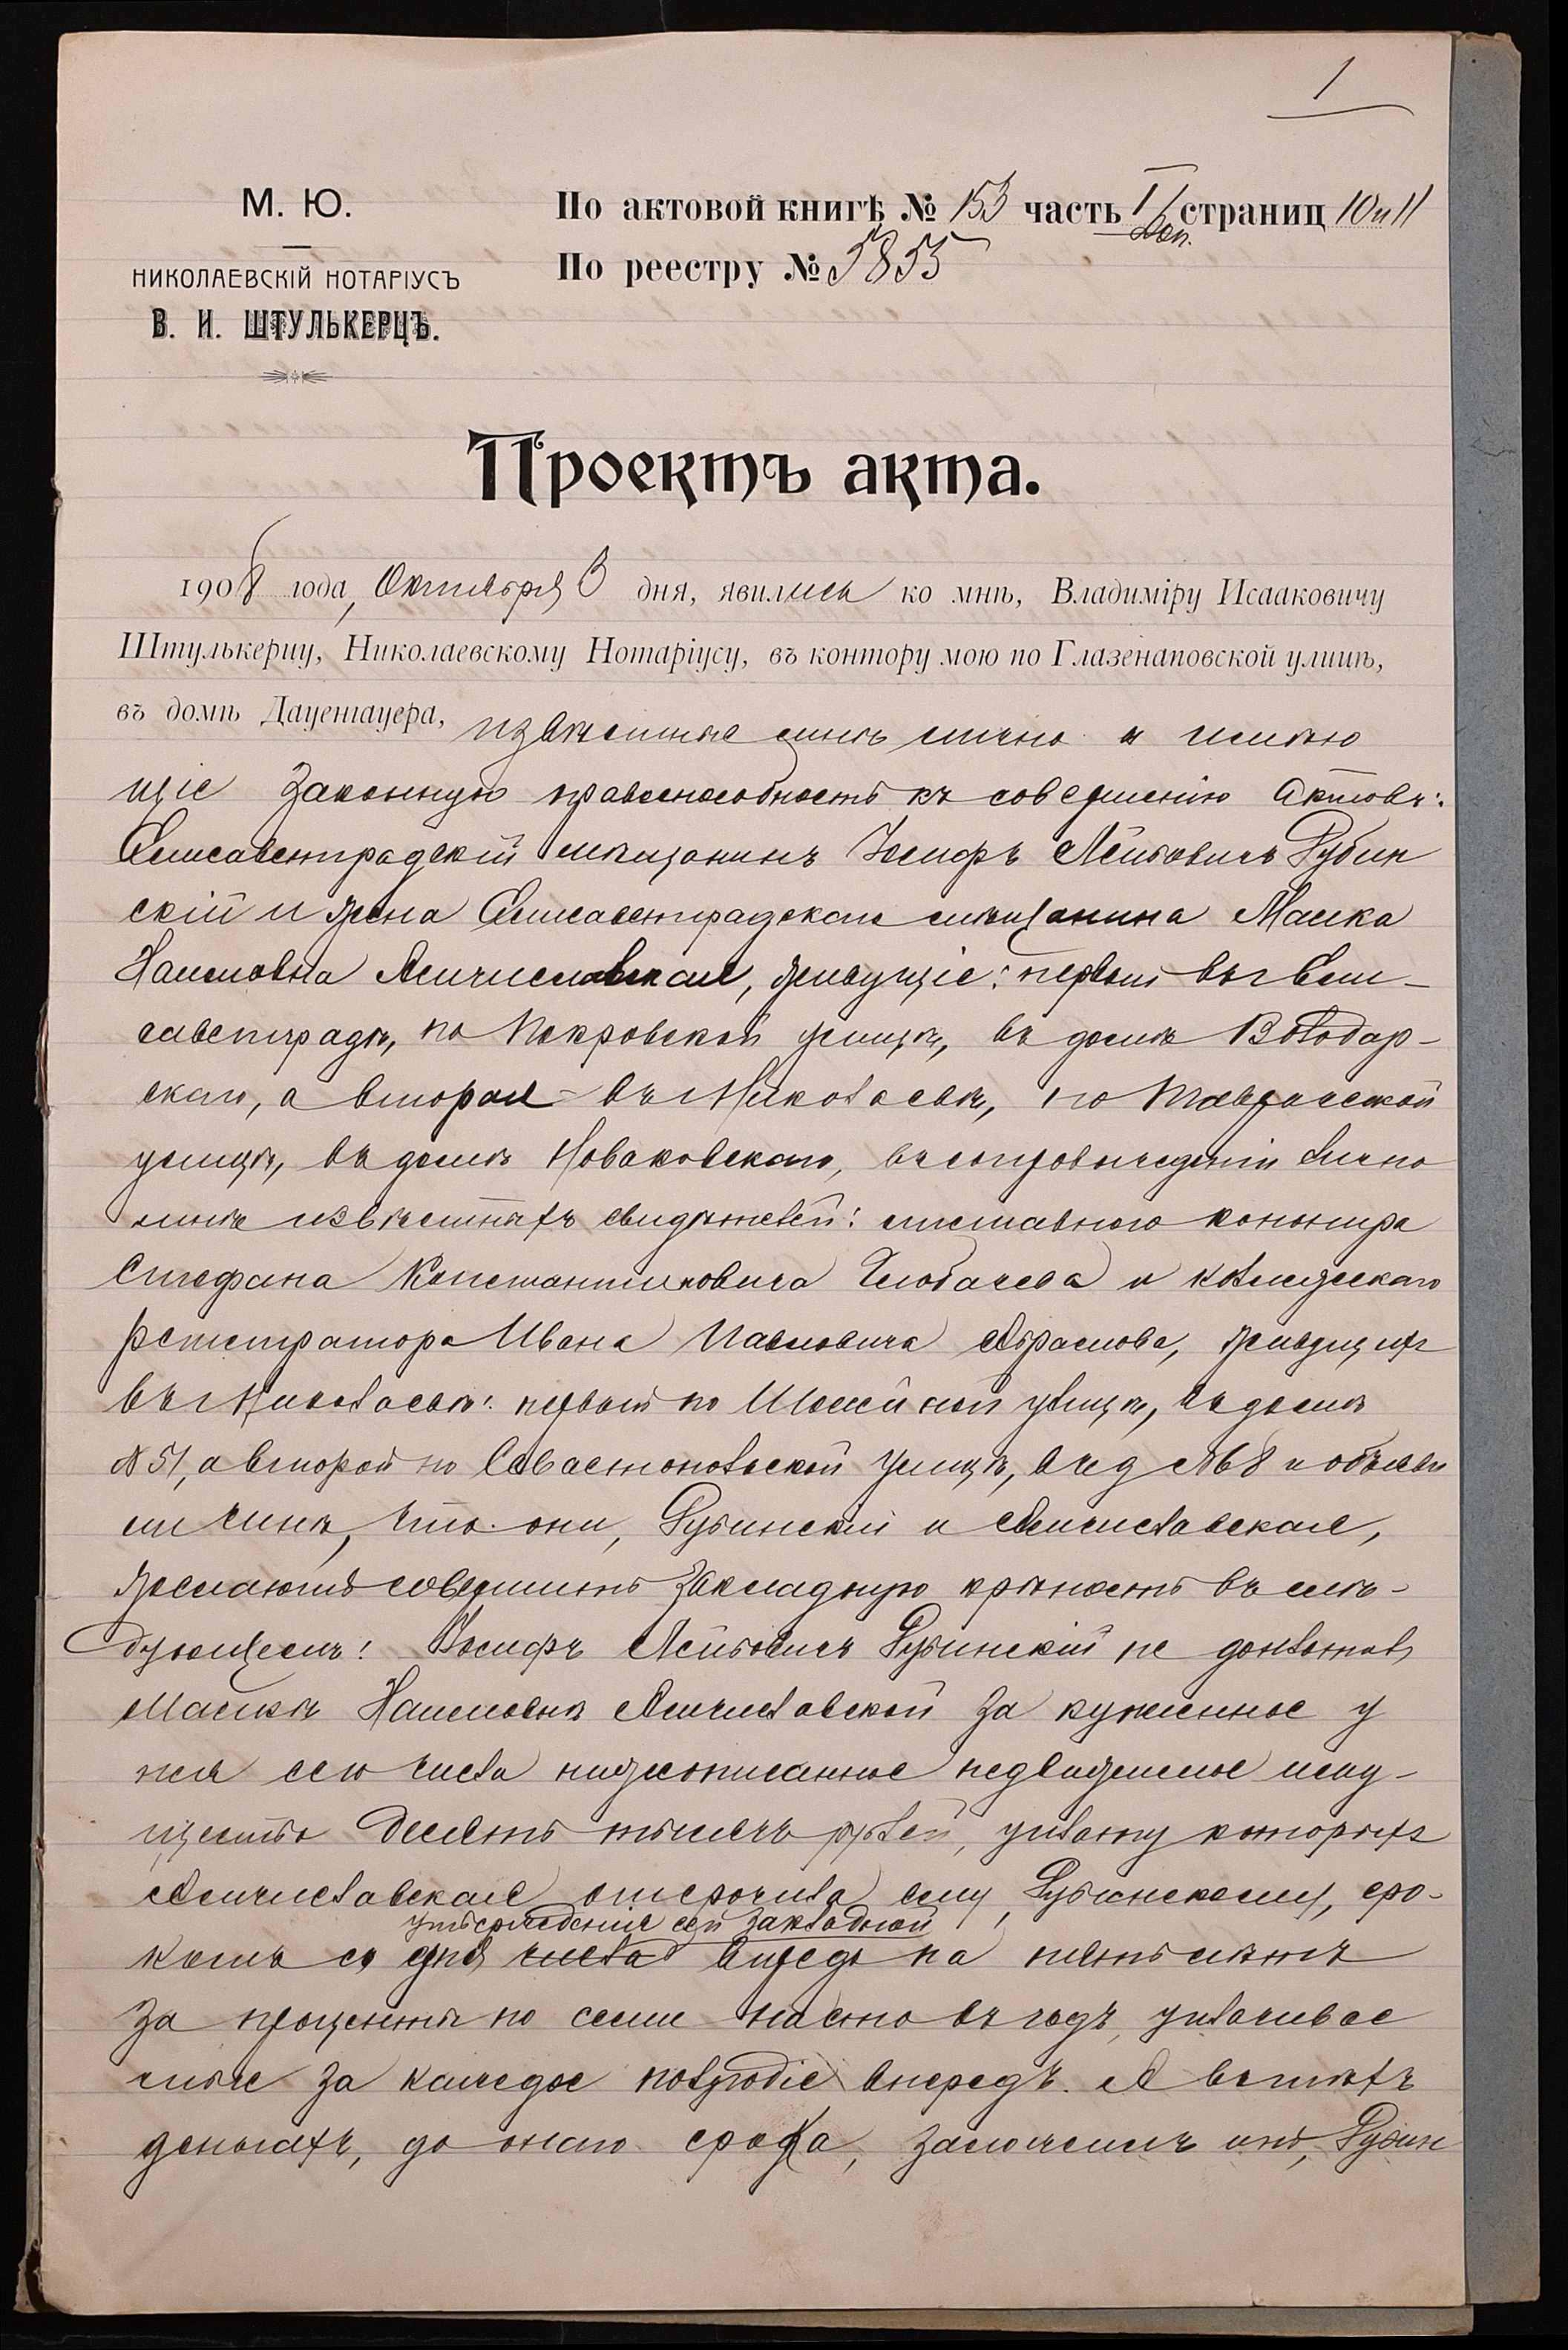 1
М. Ю.
НИКОЛАЕВСКІЙ НОТАРІУСЪ
В. И. ШТУЛЬКЕРЦЪ.
По актовой книгѣ № 153 часть I доп. страниц 10 и 11
По реестру № 5855
Проектъ акта.
1908 года, Октября 3 дня, явились ко мнѣ, Владиміру Исааковичу
Штулькерцу, Николаевскому Нотаріусу, въ контору мою по Глазенаповской улицѣ,
въ домѣ Дауенгауера, извѣстные мнѣ лично и имѣю
щіе законную правоспособность къ совершенію актовъ:
Елисаветградскій мѣщанинъ Іосифъ Лейбовичъ Рубин
скій и жена Елисаветградскаго мѣщанина Малка
Наумовна живущіе: первый въ Ели-
саветградѣ, по Покровской улицѣ, въ домѣ Володар-
скаго, а вторая въ Николаевѣ, по улицѣ,
въ домѣ Новаковскаго, въ сопровожденіи лично
мнѣ извѣстныхъ свидѣтелей: отставного
Стефана Константиновича и коллежскаго
регистратора Ивана Павловича Абрамова, живущихъ
въ Николаевѣ: первый по улицѣ, въ домѣ
№ 51, а второй по Севастопольской улицѣ, въ д № 68 и объяви
ли мнѣ, что они, Рубинскій и
желаютъ совершить закладную крѣпость въ слѣ-
дующемъ: Іосифъ Лейбовичъ Рубинскій не доплатилъ
Малкѣ Наумовнѣ за купленное у
нея сего числа нижеописанное недвижимое иму-
щество десять тысячъ рублей, уплату которыхъ
отсрочила ему, Рубинскому, сро-
утвержденія сей закладной
комъ со дня числа впредь на пять лѣтъ
за проценты по семи на сто въ годъ, уплачивае
мые за каждое полугодіе впередъ. А въ тѣхъ
деньгахъ, до онаго срока, заложилъ онъ, Рубин